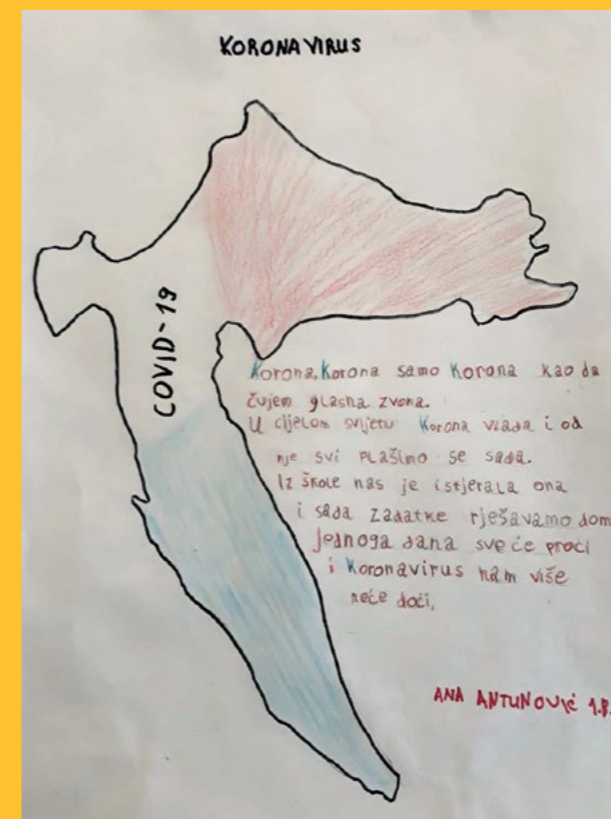 KORONAVIRUS
COVID-19
Korona, Korona samo Korona kao da
čujem glasna zvona.
U cijelom svijetu Korona vlada i od
nje svi plašimo se sada.
Iz škole nas je istjerala ona
i sada zadatke rješavamo dom
jednoga dana sve će proći
i Koronavirus nam više
neće doći,
ANA ANTUNOVIĆ 1.B.